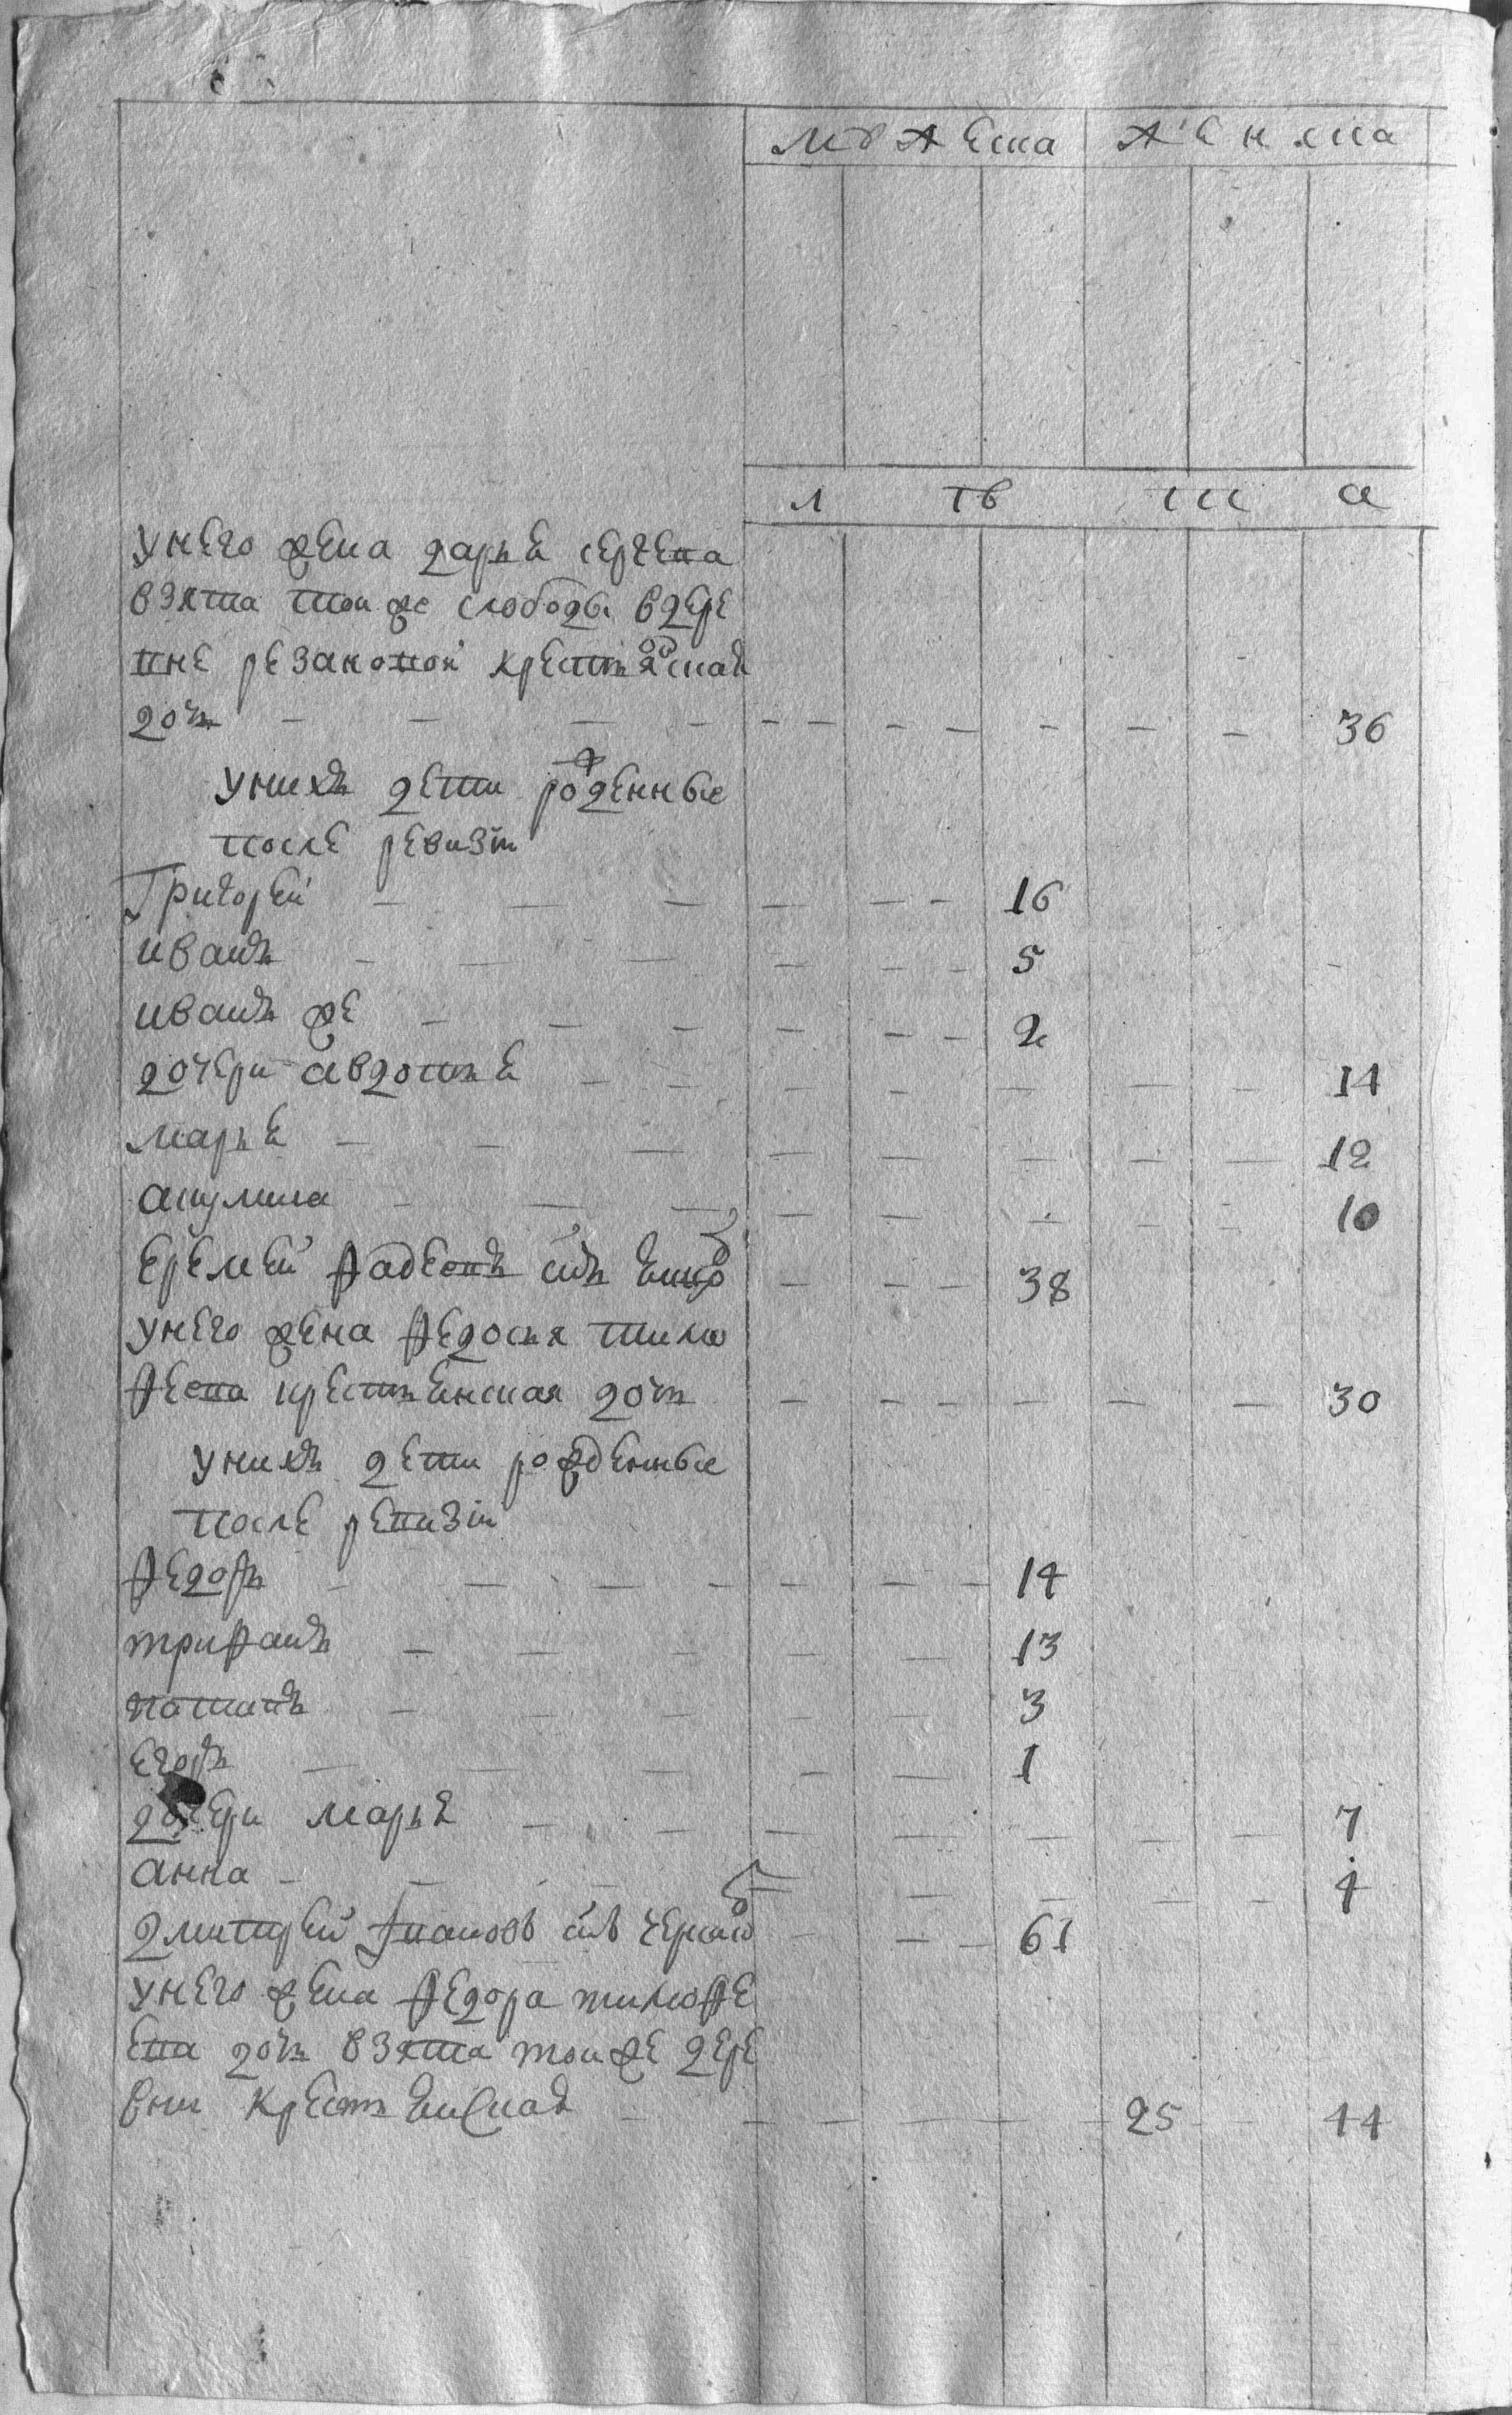 мужеска женска
л тв та а
унего жена дарья сергеева
взята тои же слободы вдере
вне резановой крестьянская
дочь 36
унихъ дети рожденные
после ревизіи
Григорей 16
иванъ 5
иванъ же 2
дочери авдотья 14
марья 12
акулина 10
еремей фадеевъ снъ 38
унего жена федосья тимо
феева крестьянская дочь 30
унихъ дети рожденные
после ревизіи
федоръ 14
трифанъ 13
логинъ 3
егоръ 1
дочери марья 7
анна 4
дмитрей ивановъ снъ 61
унего жена федора тимофе
ева дочь взята тои же дере
вни крестьянская 25 44